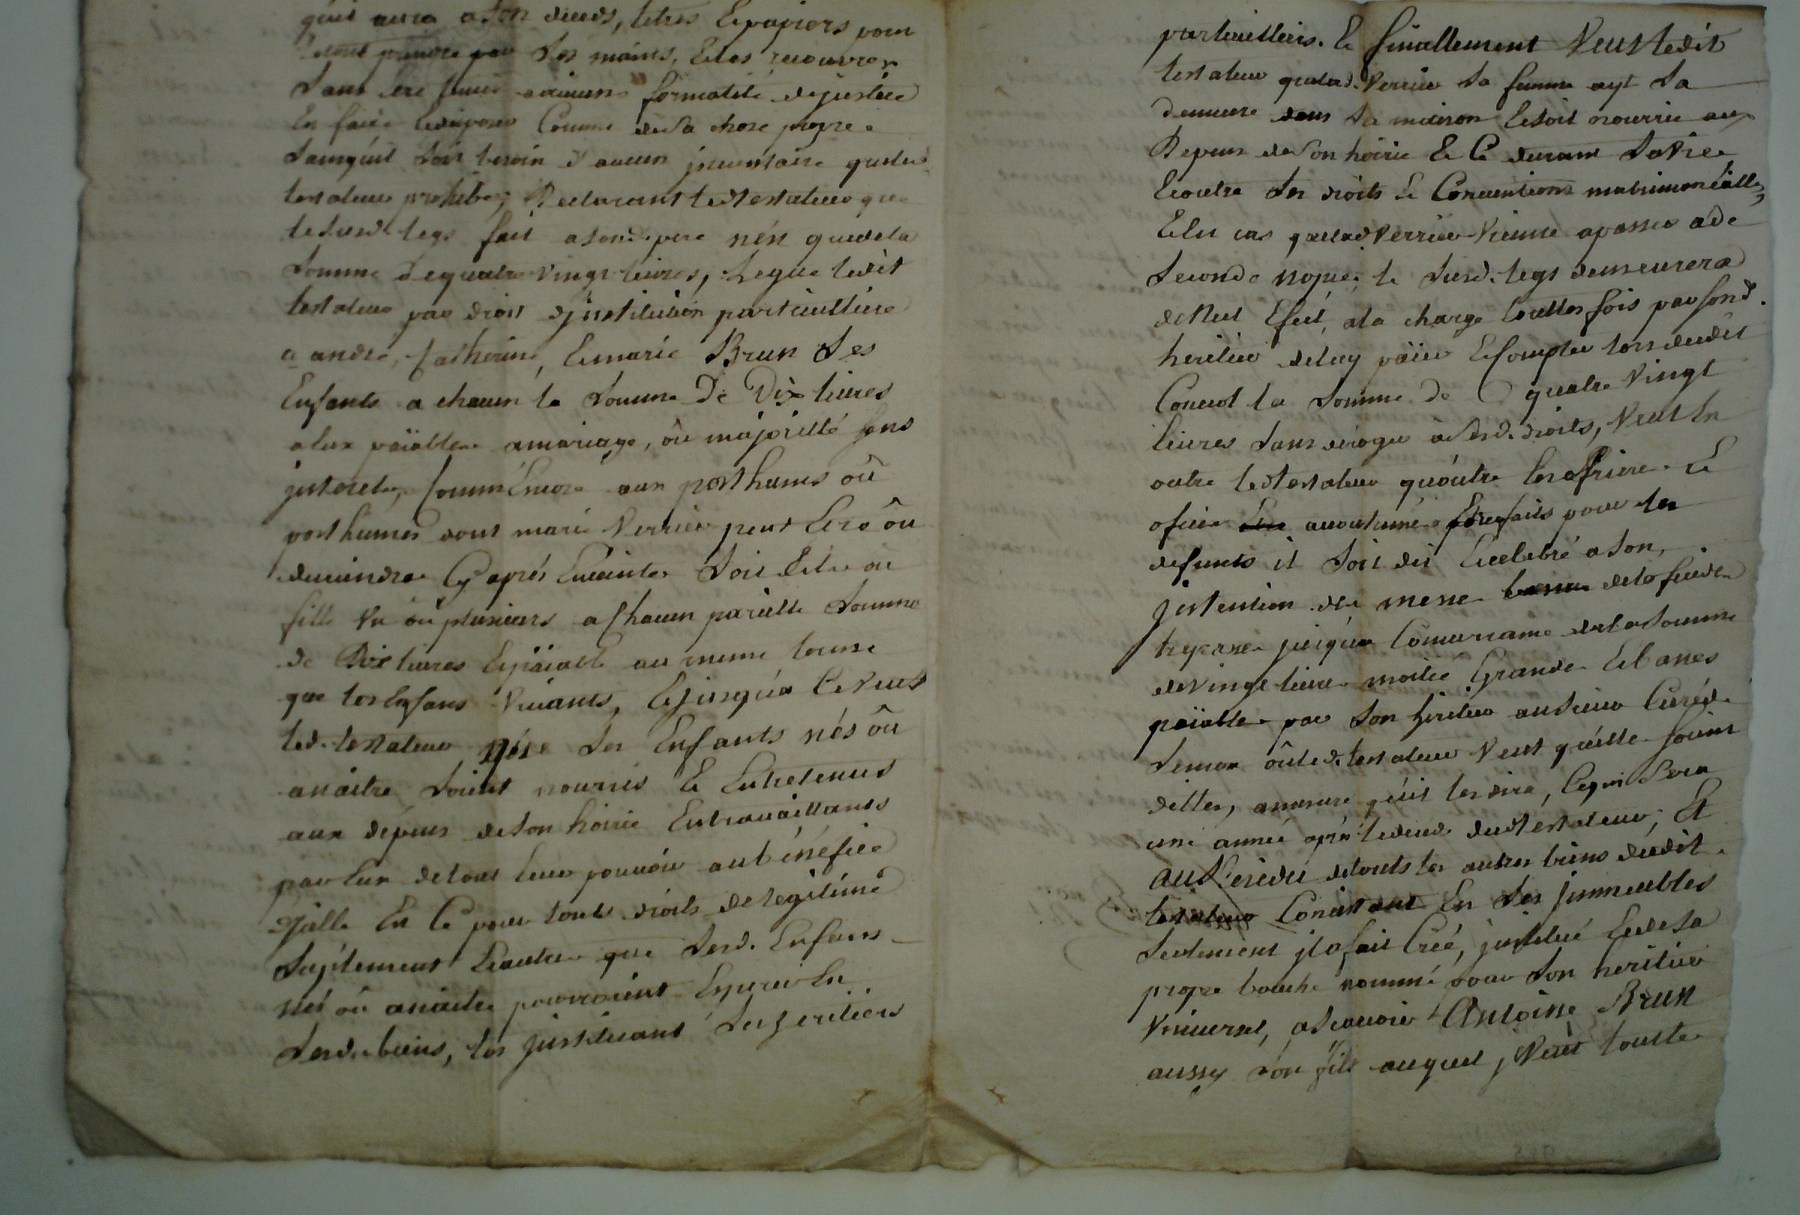 quil aura a son deceds, titres Et papiers pour
prendre par ses mains, Et les recouvrer
sans etre aucune formalité de justice
En faire Et disposer Comme de sa chose propre
sans quil soit besoin d'aucun jnventaire que led.
testateur prohibe, Declarant led testateur que
le susd. legs fait a sond. pere n'est que de la
somme de quatre vingt livres, Legue ledit
testateur par droit d'jnstitution particulliere
a andré, Catherine, Et marie Brun ses
Enfants a chacun la somme De Dix livres
a Eux païable a mariage, oû majorité sans
jnterets, Comm'Encore aux posthumes oû
posthumes dont marie Verrier peut Etre oû
devenir Cy aprés Enceinte soit fils oû
fille un oû plusieurs a Chacun pareille somme
de Dix livres Et païable au meme terme
que les Enfans vivants, Et jusqu'a Ce veut
led. testateur que ses Enfants nés oû
a naitre soient nourris Et Entretenus
aux dépens de son hoirie En travaillants
par Eux de tout leur pouvoir au bénéfice
d'jcelle Et Ce pour touts droits de legitime
suplement Et autres que sesd. Enfans
nés oû a naitre pouroient Esperer En
sesd. biens, les jnstituant ses heritiers
particulliers. Et finallement Veut ledit
testateur que lad. Verrier sa femme ayt sa
demeure dans sa maison Et soit nourrie aux
Depens de son hoirie Et Ce durant sa vie
Et outre ses droits Et Conventions matrimonialles,
Et En cas que lad Verrier Vienne a passer a de
seconde nopces, le susd. legs demeurera
de Nul Efect, a la charge touttes fois par sond.
heritier de luy païer Et Compter lors dudit
Convol la somme de quatre Vingt
livres sans deroger à sesd. droits, Veut En
outre led testateur qu'outre les priere Et
ofices accoutumés Etre faits pour les
defunts il soit dit Et celebré a son
jntention des messe de
jusqu'a Concurrance de la somme
de vingt livres moitié Grandes Et basses
païable par son heritier au sieur Curé de
oû led. testateur veut qu'elle soient
dittes, a mesure qu'il les dira, Ce qui sera
une année aprés le deceds dud testateur; Et
au Residu de touts les autres biens dudit
testateur Consistant En des jmmeubles
seulement jl a fait Créé, jnstitué Et de sa
propre bouche nommé pour son heritier
Universel, a scavoir Antoine Brun
aussy son fils auquel j Veut toutte